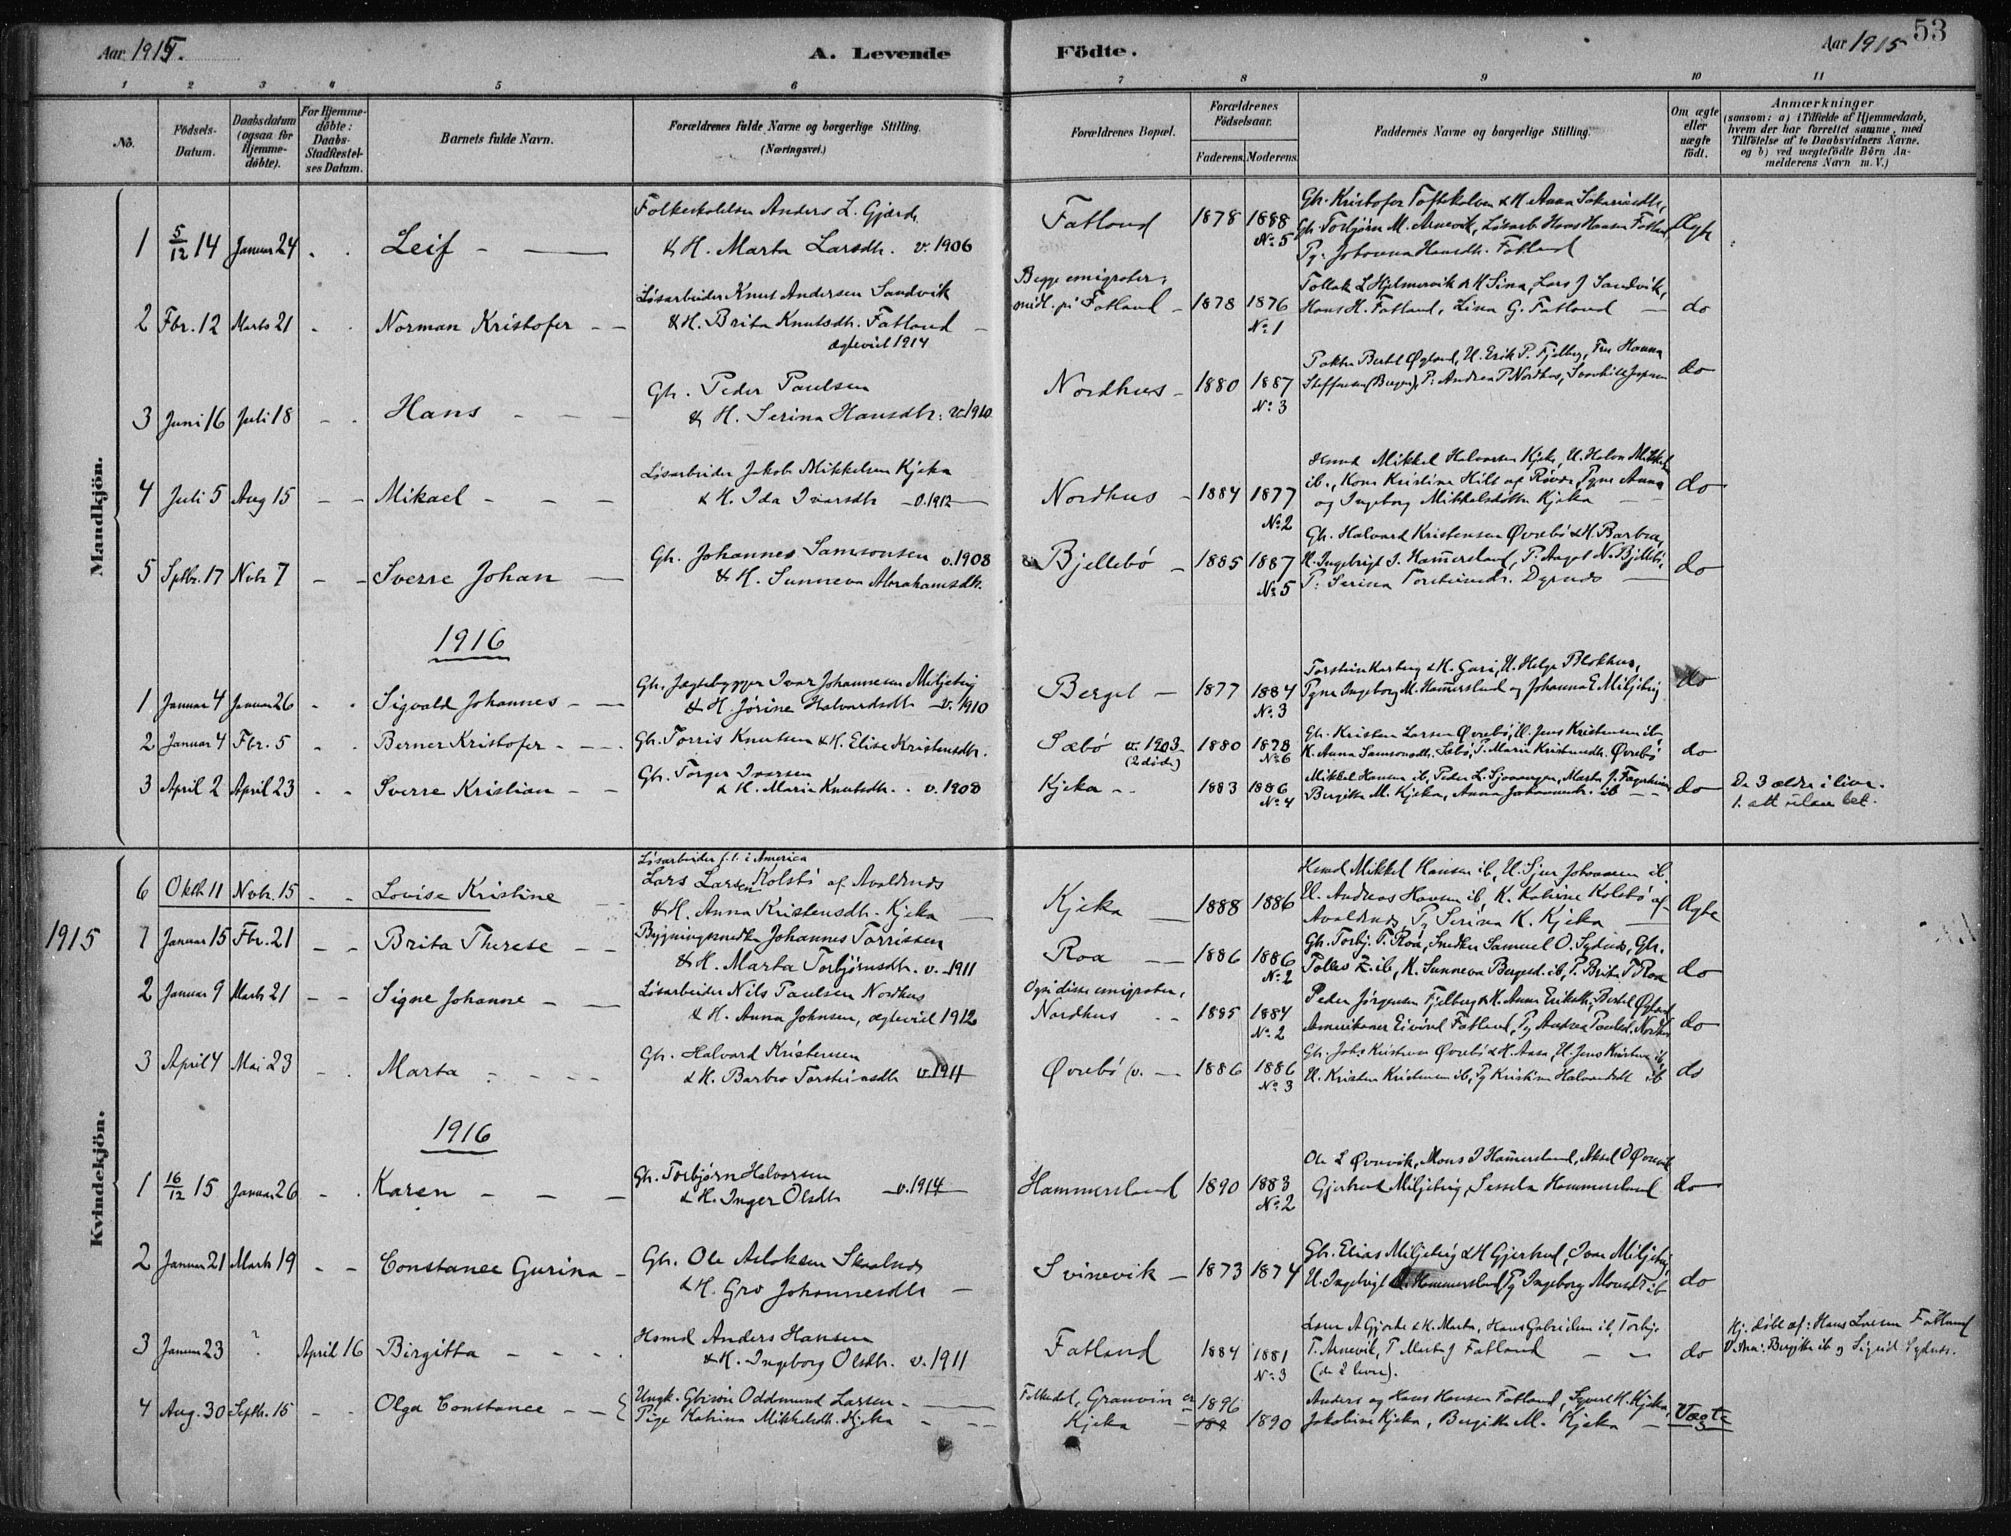 Aar 1915.
A. Levende
Födte.
Aar 1915
53
1 2 3 4 5 6 7 8 9 10 11
No.
Födsels-Datum.
Daabsdatum (ogsaa for Hjemme-döbte).
For Hjemme-döbte: Daabs-Stadfæstel-ses Datum.
Barnets fulde Navn.
Forældrenes fulde Navne og borgerlige Stilling. (Næringsvei.)
Forældrenes Bopæl.
Forældrenes Födselsaar.
Faderens.
Moderens.
Faddernes Navne og borgerlige Stilling.
Om ægte eller uægte födt.
Anmærkninger
(saasom: a) i Tilfælde af Hjemmedaab, hvem der har forrettet samme, med Tilföielse af to Daabsvidners Navne, og b) ved uægtefödte Börn Anmelderens Navn m. V.)
Mandkjön.
1 5/12 14 Januar 24 Leif
Anders L. Gjærde
& H. Marta Larsdtr. v. 1906
Fatland 1878 1888 No. 5
Gbr. Kristofer Toftekalven & H. Anna
Gbr. Torbjørn M. Arnevik, Løsarb Hans Hansen Fatland
Pg. Johanna Hansdtr. Fatland
Ægte
2 Fbr. 12 Marts 21 Norman Kristofer
Løsarbeider Knut Andersen Sandvik
& H. Brita Knutsdtr. Fatland
ægteviet 1914
Begge emigranter,
midl. på Fatland 1878 1876 No. 1
Tollak L Hjelmervik & H Sina, Lars J Sandvik,
Hans H. Fatland, Lina G. Fatland do
3 Juni 16 Juli 18 Hans
Gbr. Peder Paulsen
& H. Serina Hansdtr. v. 1910
Nordhus 1880 1887 No. 3
Bertel Øgland, U. Erik P. Fjelberg, Fru Hanna
Steffensen (Bergen), P. Andrea P Nordhus, do
4 Juli 5 Aug 15 Mikael
Løsarbeider Jakob Mikkelsen Kjeka
& H. Ida Ivarsdtr v. 1912
Nordhus 1884 1877 No. 2
Husmd Mikkel Halvorsen Kjeka, U. Halvor Mikkelsen
ib., Kone Kristine Hilt af Røvær, Pgne Anna
og Ingeborg Mikkelsdøtre Kjeka do
5 Septbr. 17 Novbr 7 Sverre Johan
Gbr. Johannes Samsonsen v. 1908
& H. Sunneva Abrahamsdtr.
Bjellebö 1885 1887 No. 5
Gbr. Halvard Kristensen Øvrebö & H. Barbra,
U. Ingebrigt J. Hammersland, P. Aagot N. Bjellebö,
P. Serina Torsteinsdtr. Dyrnes do
1916
1 Januar 4 Januar 26 Sigvald Johannes
Gbr. Jægtebygger Ivar Johannesen Miljeteig
& H. Jørine Halvardsdtr v. 1910
Berget 1877 1884 No. 3
Torstein & H. Guri, U. Helge Blokhus,
Pgne Ingeborg M. Hammersland og Johanna E Miljeteig do
2 Januar 4 Fbr. 5 Berner Kristofer
Gbr. Torris Knutsen & H. Elise Kristensdtr.
Sæbö v. 1903 (2 døde) 1880 1878 No. 6
Gbr. Kristen Larsen Øvrebö, U. Jens Kristensen ib,
K. Anna Samsonsdtr. Sæbö, P. Marie Kristensdtr. Øvrebö do
3 April 2 April 23 Sverre Kristian
Gbr. Torger Ivarsen
& H. Maria Knutsdtr. v. 1908
Kjeka 1883 1886 No. 4
Mikkel Hansen ib, Peder L.
Bergitte M. Kjeka, Anna Johannesdtr. ib do
De 3 ældre i live.
1. att uten bet.
Kvindekjön.
6 Oktbr 11 Novbr. 15 Lovise Kristine
Løsarbeider i America
Lars Larsen Kolstö af Avaldsnes
& H. Anna Kristensdtr. Kjeka
Kjeka 1888 1886
Husmd Mikkel Hansen ib, U. Sjur Johannesen ib.
U. Andreas Hansen ib, K. Katrine Kolstö af
Avaldsnes, Pg Serina K. Kjeka Ægte
1915
1 Januar 15 Fbr. 21 Brita Therese
Bygningssnedker Johannes Torrissen
& H. Marta Torbjørnsdtr. v. 1911
Roa 1886 1886 No. 2
Gbr. Torbj. T. Roa, Snedker Samuel O. Sydnes, Gbr.
Tolles ib, K. Sunneva Bergesd. ib, P. Brita T Roa do
2 Januar 9 Marts 21 Signe Johanne
Løsarbeider Nils Paulsen Nordhus
& H. Anna Johnsen, ægteviet 1912
Også disse emigranter,
Nordhus 1885 1884 No. 2
Peder Jørgensen Fjelberg & H. Anna Eriksdtr, Bertel Øgland
Amerikaner Eivind Fatland, Pg Andrea Paulsd. Nordhus do
3 April 4 Mai 23 Marta
Gbr. Halvard Kristensen
& H. Barbro Torsteinsdtr v. 1911
Øvrebö 1886 1886 No. 3
Gbr. Johs Kristensen Øvrebö & H. Anna, U. Jens Kristensen ib
U. Kristen Kristensen ib, Pg Kristine Halvardsdtr ib do
1916
1 16/12 15 Januar 26 Karen
Gbr. Torbjørn Halvorsen
& H. Inger Olsdtr v. 1914
Hammersland 1890 1883 No. 2
Ole L Ørevik, Mons J Hammersland, Aksel O Ørevik
Gjertrud Miljeteig, Sessela Hammersland do
2 Januar 21 Marts 19 Constance Gurina
Gbr. Ole Aslaksen Skaalnes
& H. Gro Johannesdtr
Svinevik 1873 1874
Gbr. Elias Miljeteig & H Gjertrud, Ivar Miljeteig,
U. Ingebrigt Hammersland, Pg Ingeborg Monsdtr ib do
3 Januar 23 ? April 16 Birgitta
Husmd Anders Hansen
& H. Ingeborg Olsdtr. v. 1911
Fatland 1884 1881 No. 3
A Gjærde & H. Marta, Hans Gabrielsen ib, Torbj.
T. Arnevik, P Marta J Fatland
(de 2 leve). do
Hj. døbt af: Hans Larsen Fatland
Bergitte ib og Sigrid Sydnes.
4 Aug. 30 Septbr. 15 Olga Constance
Ungk. Gbrsön Oddmund Larsen
Pige Katrina Mikkelsdtr. Kjeka
Folkedal, Granvin 1896
Kjeka 1890
Anders og Hans Hansen Fatland, Syvert H. Kjeka,
Jakobine Kjeka, Bergitte M. Kjeka Uægte